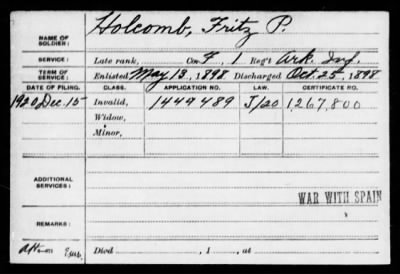 NAME OF SOLDIER: Holcomb, Fritz P.
SERVICE: Late rank, Co. F, 1 Reg't Ark. Inf.
TERM OF SERVICE: Enlisted May 13, 1898 Discharged Oct 25, 1898
DATE OF FILING. CLASS. APPLICATION NO. LAW. CERTIFICATE NO.
1920 Dec. 15 Invalid, 1449489 J/20 1,267,800
Widow,
Minor,
ADDITIONAL SERVICES:
WAR WITH SPAIN
REMARKS:
Died , 1 , at